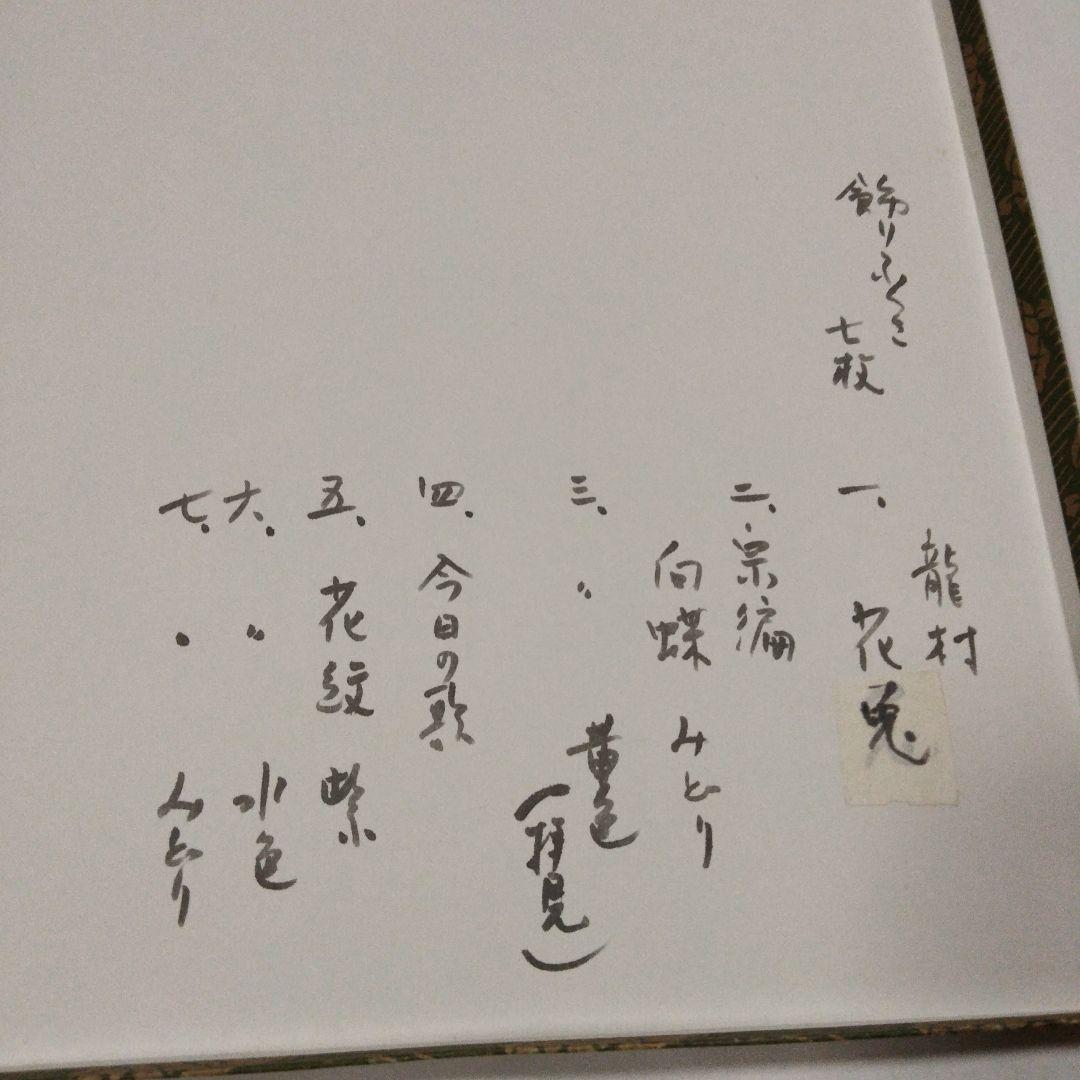 飾りふくさ
七枚
龍村
一、花兎
二、宗編
向蝶 みどり
三、〃 黄色
（拝見）
四、今日の歌
五、花紋 紫
六、〃 水色
七、〃 みどり